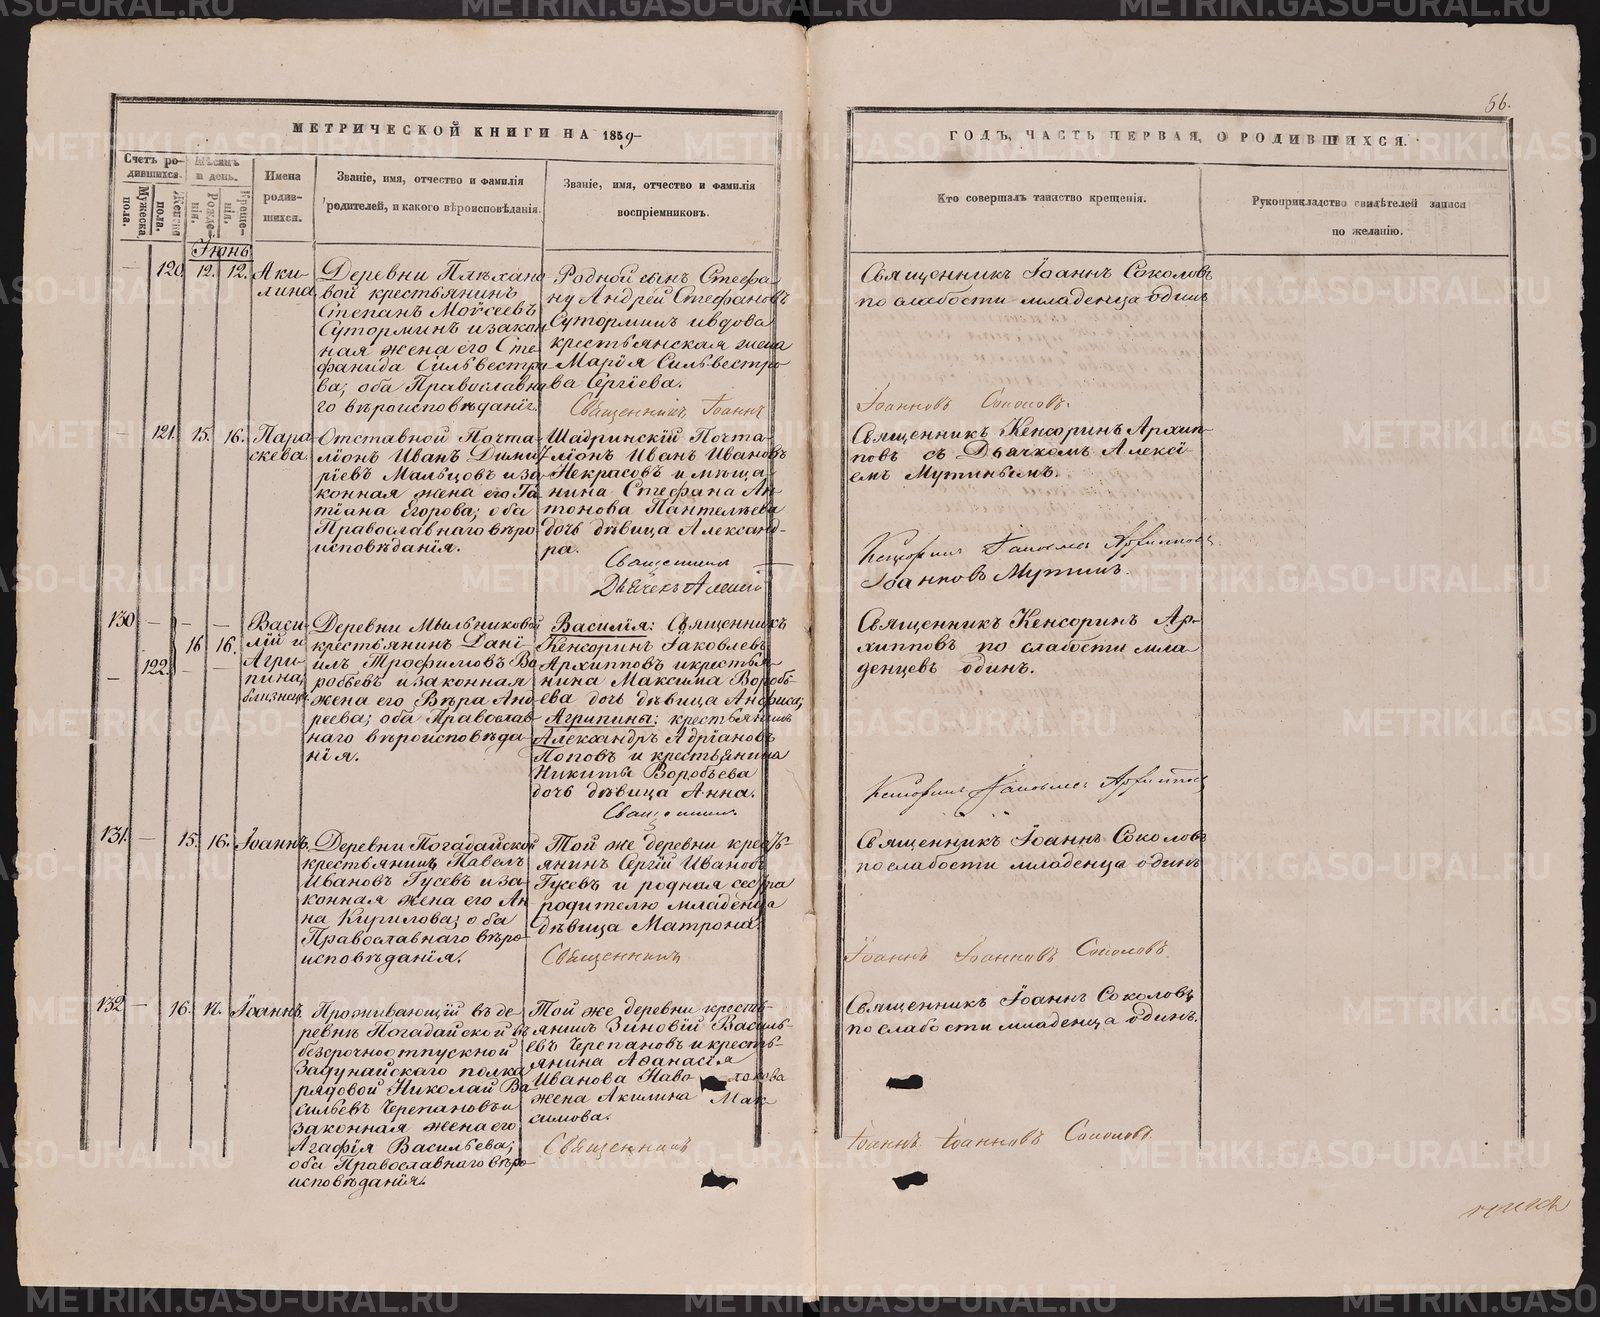 56.
МЕТРИЧЕСКОЙ КНИГИ НА 1859
ГОДЪ, ЧАСТЬ ПЕРВАЯ, О РОДИВШИХСЯ.
Счетъ ро-
дившихся.
Мужеска
пола.
Женска
пола.
Мѣсяцъ
и день.
Рожде-
нія.
Креще-
нія.
Имена
родив-
шихся.
Званіе, имя, отчество и фамилія
родителей, и какого вѣроисповѣданія.
Званіе, имя, отчество и фамилія
воспріемниковъ.
Кто совершалъ таинство крещенія.
Рукоприкладство свидѣтелей записи
по желанію.
Іюнь
120. 12. 12.
Аки-
лина
Деревни Плѣхано
вой крестьянинъ
Степанъ Моѵсеевъ
Суторминъ и закон
ная жена его Сте
фанида Сильвестро
ва; оба Православна
го вѣроисповѣданія.
Родной сынъ Стефа
ну Андрей Стефановъ
Суторминъ и вдова
крестьянская жена
Марія Сильвестро
ва Сергіева.
Священникъ Іоаннъ
Священникъ Іоаннъ Соколовъ
по слабости младенца одинъ
Іоанновъ Соколовъ.
121. 15. 16.
Пара
скева.
Отставной Почта-
ліонъ Иванъ Дими
ріевъ Мальцовъ и за
конная жена его Та
тіана Егорова; оба
Православнаго вѣро
исповѣданія.
Шадринскій Почта-
ліонъ Иванъ Ивановъ
Некрасовъ и мѣща
нина Стефана Ан
тонова Пантелѣева
дочь дѣвица Александ-
ра.
Священникъ
Дьячекъ Алексій
Священникъ Кенсоринъ Архип-
повъ съ Дьячкомъ Алексі
емъ Мутинымъ.
Кенсоринъ Іаковлевъ Архипповъ
Іоанновъ Мутинъ.
130 16 16.
122.
Васи-
лій и
Агри-
пина,
близнецы
Деревни Мыльниковой
крестьянинъ Дані-
илъ Трофимовъ Во
робьевъ и законная
жена его Вѣра Анд
реева; оба Православ
наго вѣроисповѣда
нія.
Василія: Священникъ
Кенсоринъ Іаковлевъ
Архипповъ и крестья
нина Максима Воробь
ева дочь дѣвица Анфиса;
Агрипины: крестьянинъ
Александръ Адріановъ
Поповъ и крестьянина
Никиты Воробьева
дочь дѣвица Анна.
Священникъ
Священникъ Кенсоринъ Ар-
хипповъ по слабости мла
денцевъ одинъ.
Кенсоринъ Іаковлевъ Архипповъ
131. 15. 16.
Іоаннъ.
Деревни Погадайской
крестьянинъ Павелъ
Ивановъ Гусевъ и за
конная жена его Ан
на Кирилова; оба
Православнаго вѣро
исповѣданія.
Той же деревни кресть-
янинъ Сергій Ивановъ
Гусевъ и родная сестра
родителю младенца
дѣвица Матрона.
Священникъ
Священникъ Іоаннъ Соколовъ
по слабости младенца одинъ
Іоаннъ Іоанновъ Соколовъ.
132 16. 17.
Іоаннъ.
Проживающій въ де-
ревнѣ Погадайской въ
безсрочноотпускной
Задунайскаго полка
рядовой Николай Ва
сильевъ Черепановъ и
законная жена его
Агафія Васильева;
оба Православнаго вѣро
исповѣданія.
Той же деревни кресть-
янинъ Зиновій Василь-
евъ Черепановъ и кресть-
янина Аѳанасія
Иванова
жена Акилина Мак
симова.
Священникъ
Священникъ Іоаннъ Соколовъ
по слабости младенца одинъ.
Іоаннъ Іоанновъ Соколовъ
METRIKI.GASO-URAL.RU